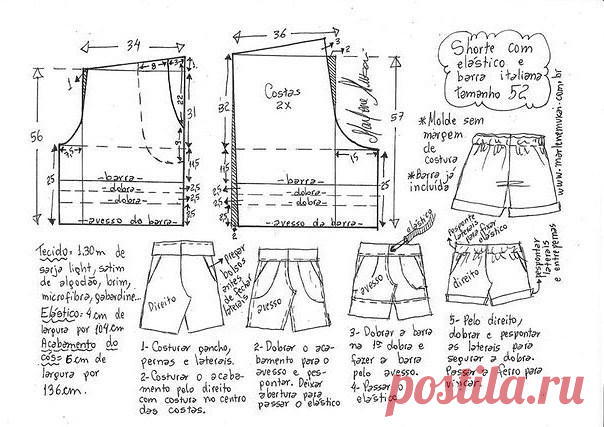 34
36
Shorte com
elástico e
barra italiana
tamanho 52
www.marlenemukai.com.br
3
2
8
3
1
22
Costas
2X
Marlene Mukai
*Molde sem
margem
de
costura
*Barra já
incluída
56
31
32
57
9
7,5
15
25
11,5
11,5
25
-barra-
-dobra-
-dobra-
-avesso da barra-
2,5
2,5
-barra-
-dobra-
-dobra-
-avesso da barra-
2
Tecido: 1.30m de
sarja light, satim
de algodão, brim,
microfibra, gabardine...
Elástico: 4 cm de
largura por 104 cm
Acabamento do
cós: 6 cm de
largura por
136 cm.
Direito
Pregar
bolsos
antes
de fechar
laterais
avesso
elástico
avesso
Pesponte
laterais
para fixar
elástico
direito
pespontar
laterais
e entrepernas
1- Costurar gancho,
pernas e laterais.
2- Costurar o acaba-
mento pelo direito
com costura no centro
das costas.
2- Dobrar o aca-
bamento para o
avesso e pes-
pontar. Deixar
abertura para
passar o elástico
3- Dobrar a barra
na 1ª dobra e
fazer a barra
pelo avesso.
4- Passar o
elástico
5- Pelo direito,
dobrar e pespontar
as laterais para
segurar a dobra.
Passar a ferro para
vincar.
postila.ru